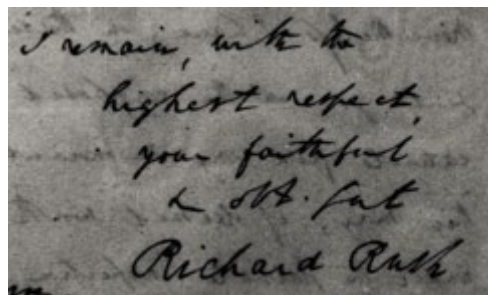 I remain, with the
highest respect,
your faithful
& obt. Svt
Richard Rush